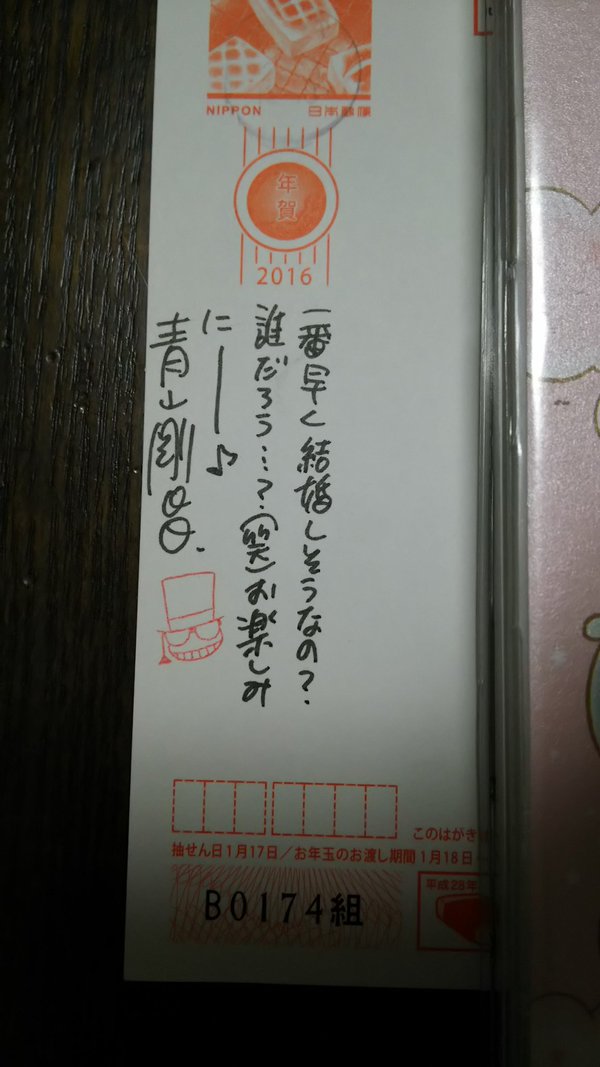 NIPPON 日本郵便
年賀
2016
一番早く結婚しそうなの?
誰だろう…?(笑)お楽しみ
にー♪
青山剛昌.
このはがき
抽せん日1月17日/お年玉のお渡し期間1月18日
B0174組
平成28年